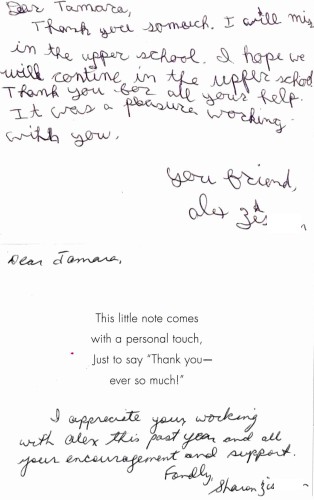 Dear Tamara,
Thank you somuch. I will mis
in the upper school. I hope we
will contine in the upper school
Thank you for all your help.
It was a pleasure working
with you.
you friend,
alex
Dear Tamara,
This little note comes
with a personal touch,
Just to say "Thank you—
ever so much!"
I appreciate your working
with Alex this past year and all
your encouragement and support.
Fondly,
Sharon